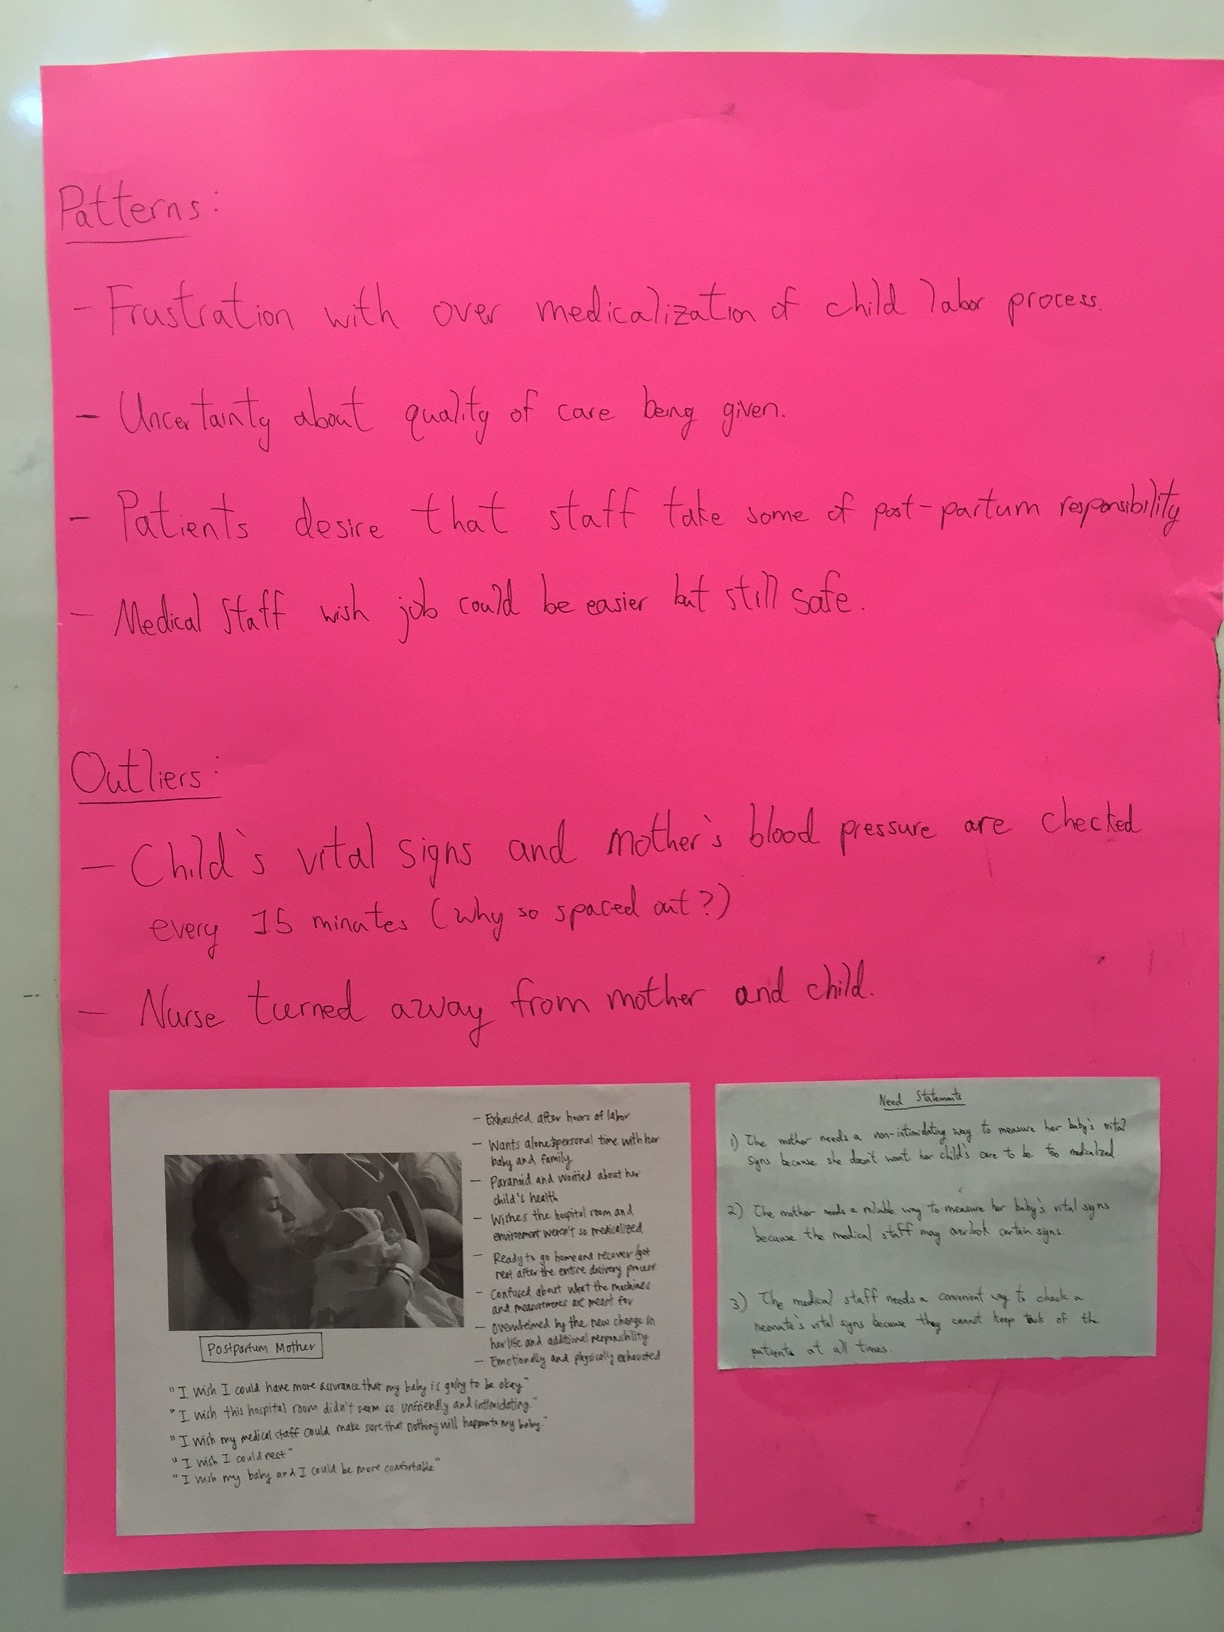 Patterns:
- Frustration with over medicalization of child labor process.
- Uncertainty about quality of care being given.
- Patients desire that staff take some of post-partum responsibility
- Medical Staff wish job could be easier but still safe.
Outliers:
- Child's vital signs and mother's blood pressure are checked
every 15 minutes (why so spaced out?)
- Nurse turned away from mother and child.
- Exhausted after hours of labor
- Wants alone & personal time with her
baby and family
- Paranoid and worried about her
child's health
- Wishes the hospital room and
environment weren't so medicalized
- Ready to go home and recover/get
rest after the entire delivery process
- Confused about what the machines
and measurements are meant for
- Overwhelmed by the new change in
her life and additional responsibility
- Emotionally and physically exhausted
Postpartum Mother
"I wish I could have more assurance that my baby is going to be okay"
"I wish this hospital room didn't seem so unfriendly and intimidating."
"I wish my medical staff could make sure that nothing will happen to my baby."
"I wish I could rest"
"I wish my baby and I could be more comfortable"
Need Statements
1) The mother needs a non-intimidating way to measure her baby's vital
signs because she doesn't want her child's care to be too medicalized.
2) The mother needs a reliable way to measure her baby's vital signs
because the medical staff may overlook certain signs.
3) The medical staff needs a convenient way to check a
neonate's vital signs because they cannot keep track of the
patients at all times.